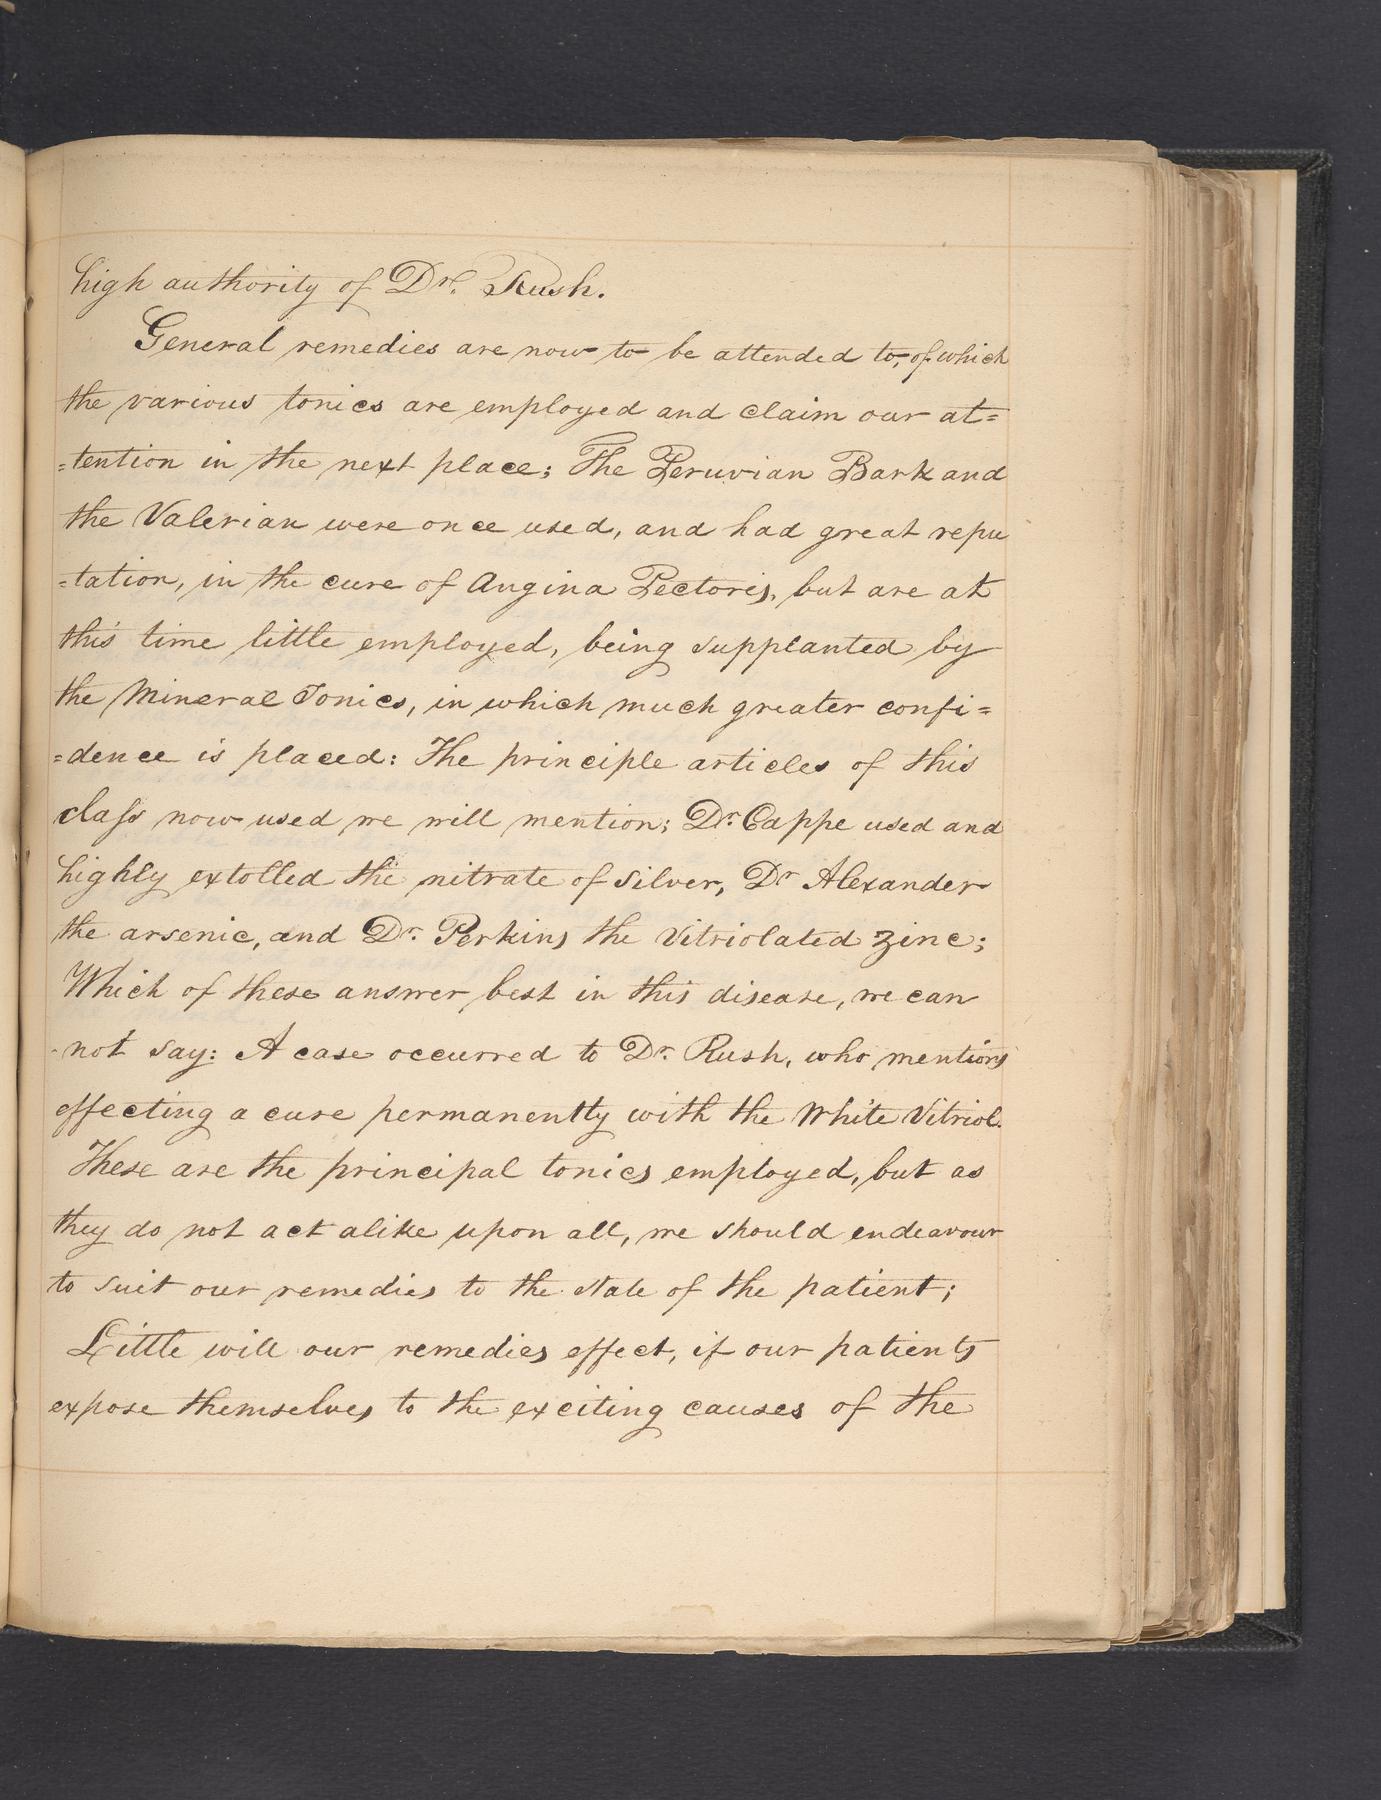 high authority of Dr. Rush.
General remedies are now to be attended to, of which
the various tonics are employed and claim our at=
=tention in the next place; The Peruvian Bark and
the Valerian were once used, and had great repu
=tation, in the cure of Angina Pectoris, but are at
this time little employed, being supplanted by
the Mineral Tonics, in which much greater confi=
=dence is placed: The principle articles of this
class now used we will mention; Dr. Cappe used and
highly extolled the nitrate of silver, Dr Alexander
the arsenic, and Dr. Perkins the Vitriolated Zinc;
Which of these answer best in this disease, we can
-not say: A case occurred to Dr. Rush, who mentions
effecting a cure permanently with the White Vitriol.
These are the principal tonics employed, but as
they do not act alike upon all, we should endeavour
to suit our remedies to the state of the patient;
Little will our remedies effect, if our patients
expose themselves to the exciting causes of the